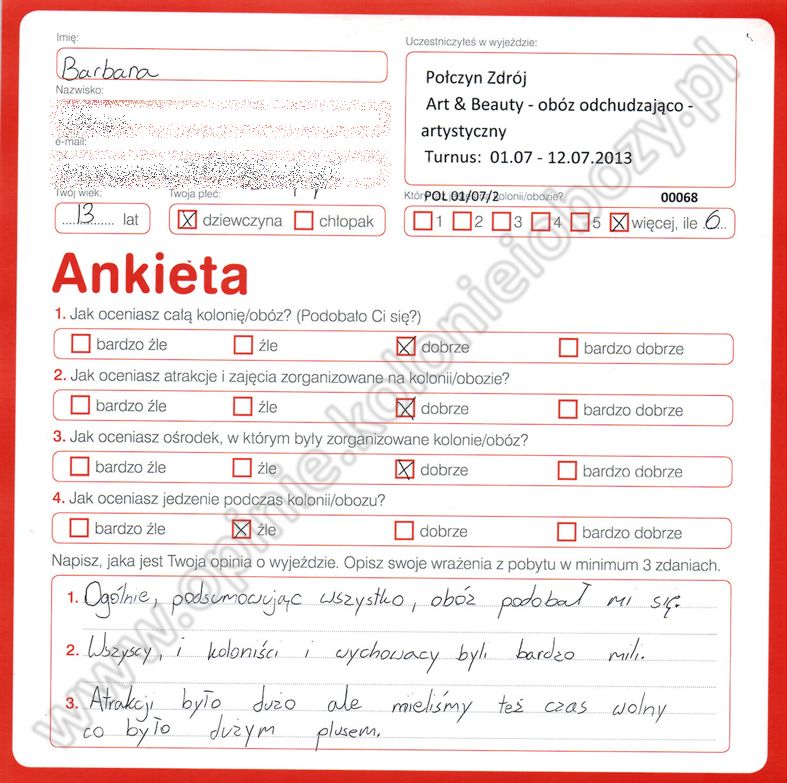 Imię:
Uczestniczyłeś w wyjeździe:
Barbara
Połczyn Zdrój
Art & Beauty - obóz odchudzająco -
artystyczny
Turnus: 01.07 - 12.07.2013
Nazwisko:
e-mail:
Twój wiek:
Twoja płeć:
POL 01/07/2 kolonii/obozie?
00068
13 lat
dziewczyna
chłopak
1 2 3 4 5 więcej, ile 6
Ankieta
1. Jak oceniasz całą kolonię/obóz? (Podobało Ci się?)
bardzo źle źle dobrze bardzo dobrze
2. Jak oceniasz atrakcje i zajęcia zorganizowane na kolonii/obozie?
bardzo źle źle dobrze bardzo dobrze
3. Jak oceniasz ośrodek, w którym były zorganizowane kolonie/obóz?
bardzo źle źle dobrze bardzo dobrze
4. Jak oceniasz jedzenie podczas kolonii/obozu?
bardzo źle źle dobrze bardzo dobrze
Napisz, jaka jest Twoja opinia o wyjeździe. Opisz swoje wrażenia z pobytu w minimum 3 zdaniach.
1. Ogólnie, podsumowując wszystko, obóz podobał mi się.
2. Wszyscy, i koloniści i wychowacy byli bardzo mili.
3. Atrakcji było dużo ale mieliśmy też czas wolny
co było dużym plusem.
www.opinie.kolonieiobozy.pl